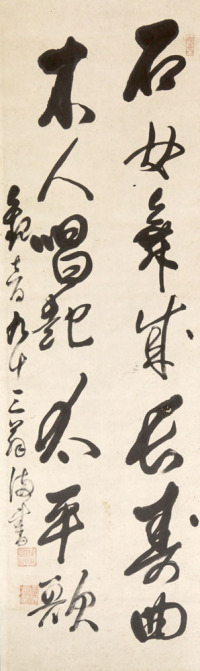 石女舞成長壽曲
木人唱起太平歌
観音九十三翁書